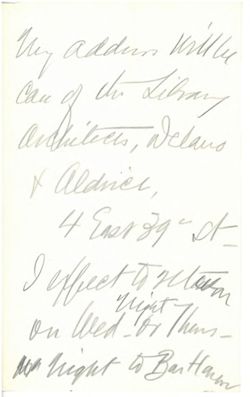 My address will be
Care of the Library
Architects, Delano
& Aldrich,
4 East 39th St -
I expect to return
night
on Wed - or Thurs -
night to Bar Harbor